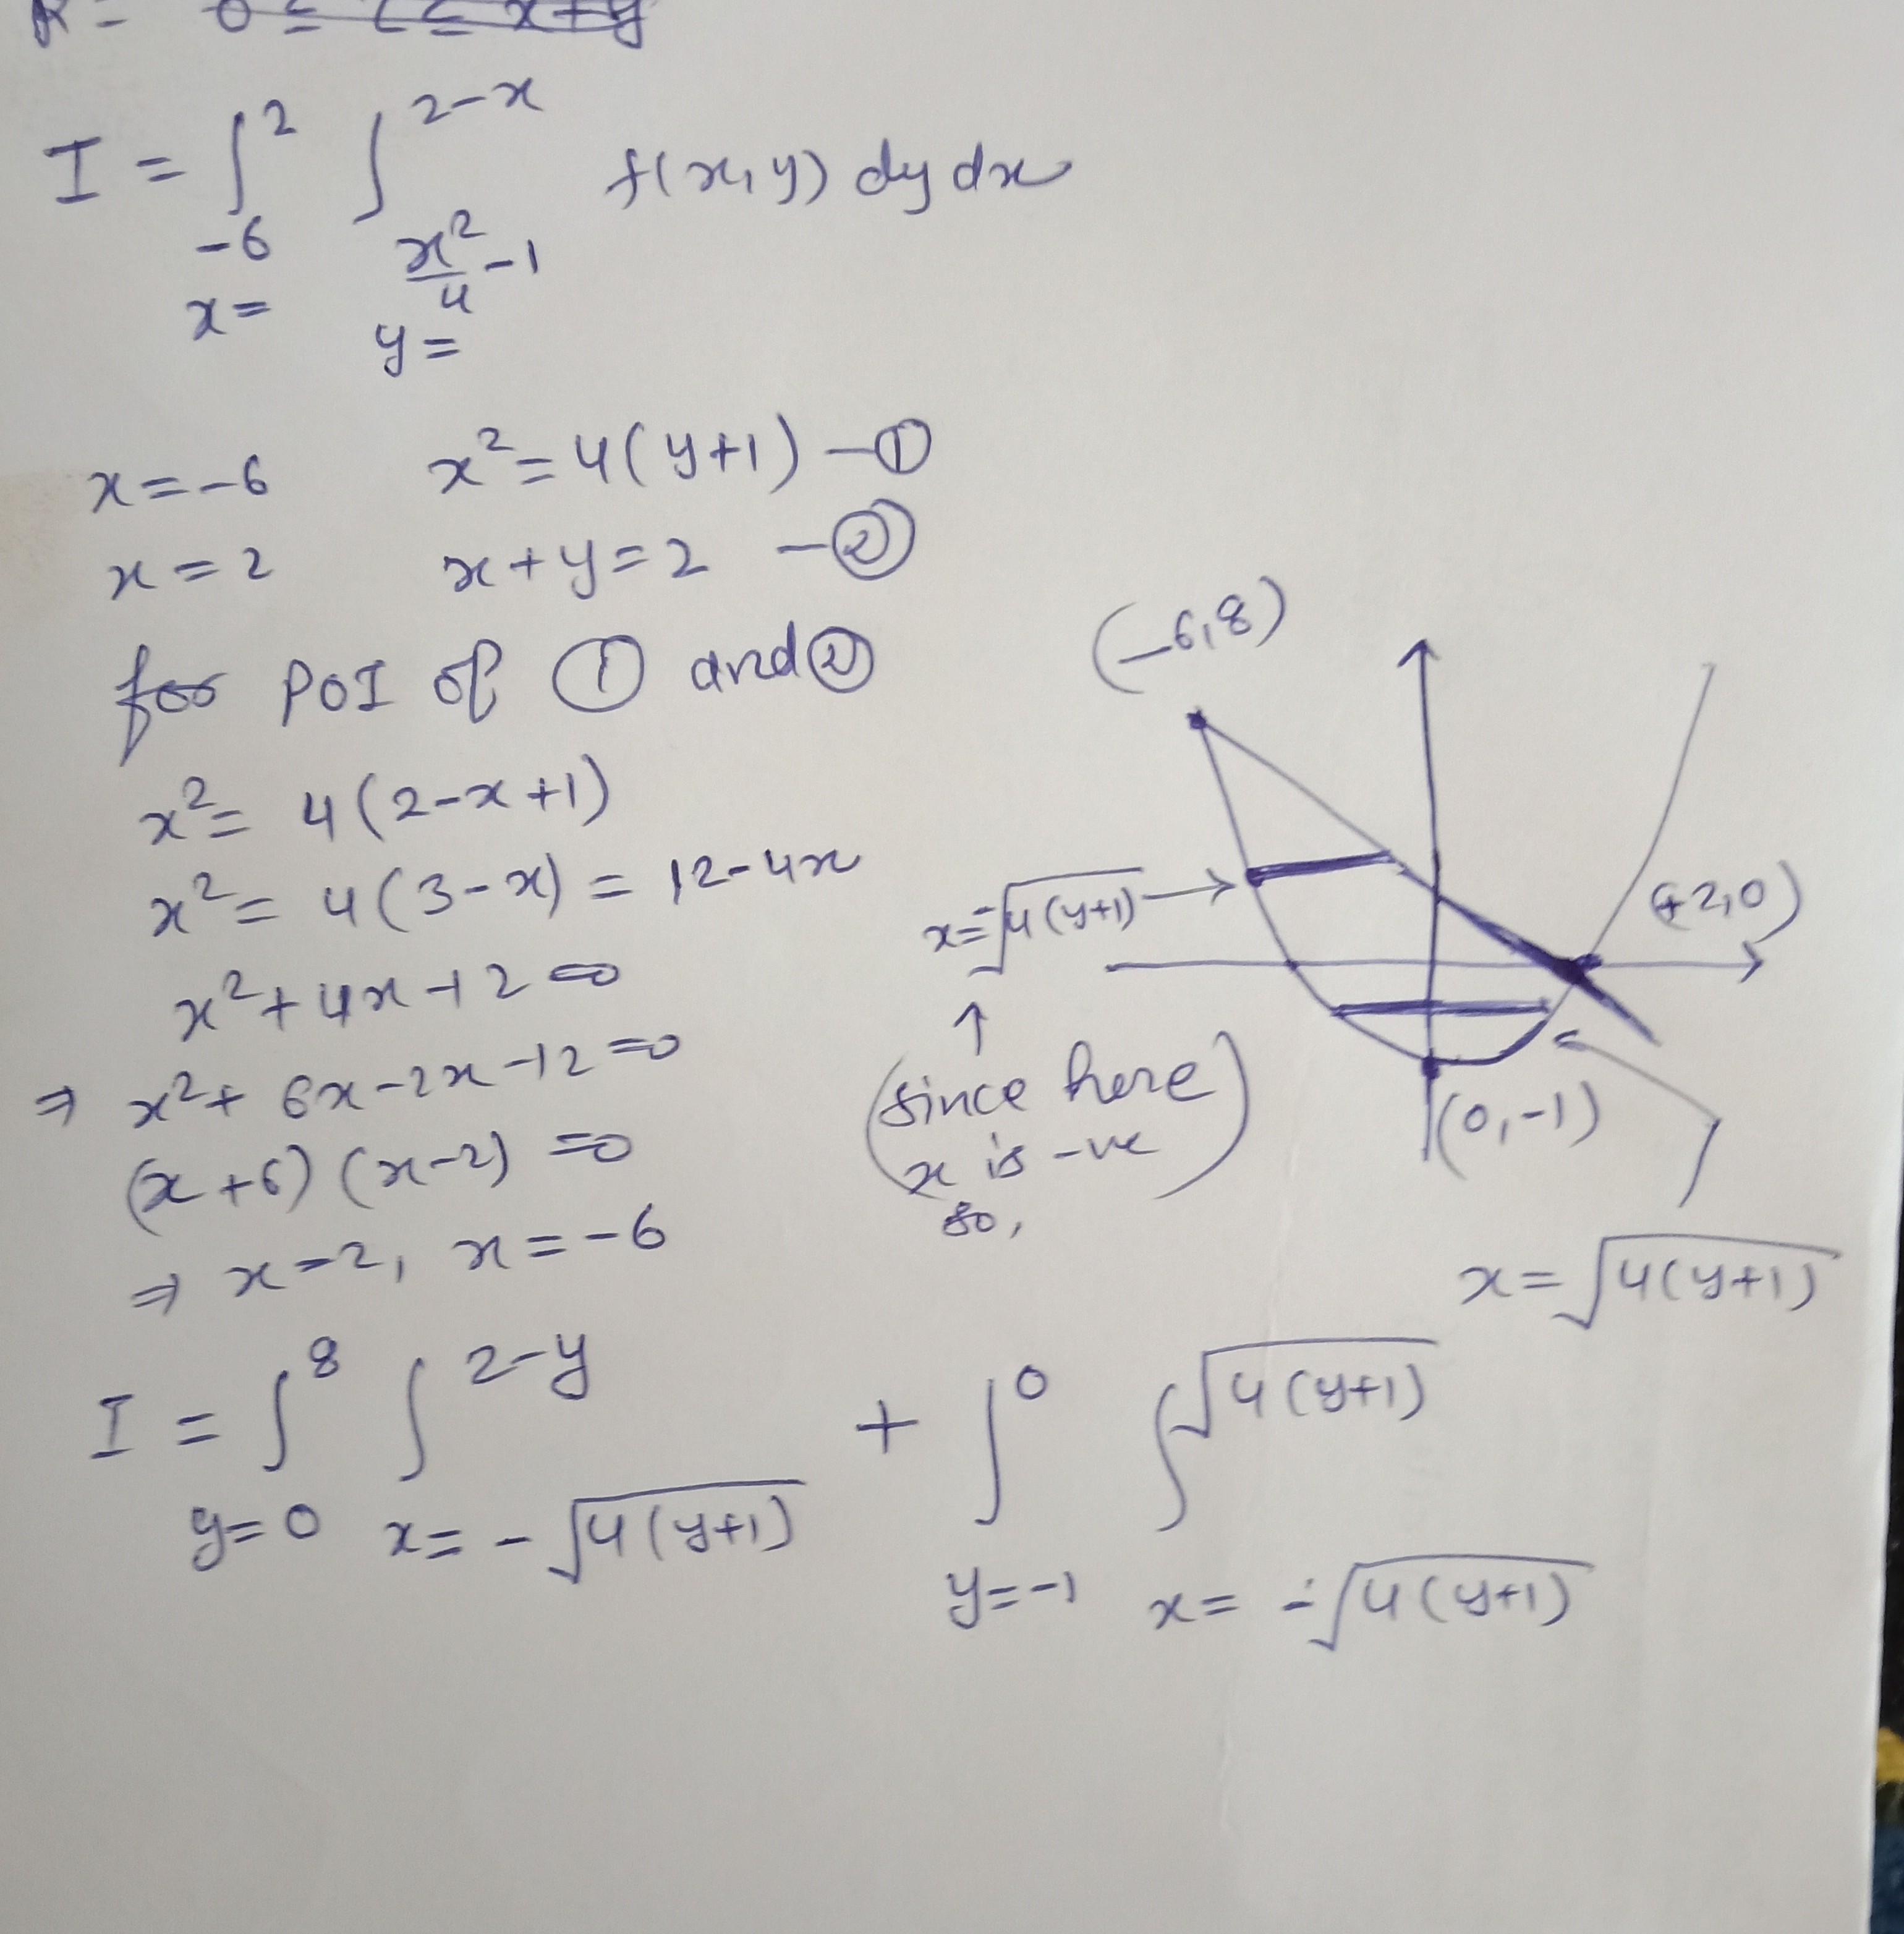 R = 0 ≤ z ≤ x+y
I = ∫_{-6}^{2} ∫_{x²/4 -1}^{2-x} f(x,y) dy dx
x= y=
x=-6 x²=4(y+1) -①
x=2 x+y=2 -②
for POI of ① and ②
x²= 4(2-x+1)
x²= 4(3-x) = 12-4x
x²+4x-12=0
⇒ x²+6x-2x-12=0
(x+6)(x-2)=0
⇒ x=2, x=-6
(-6,8)
x=-√4(y+1) →
↑
(since here
x is -ve
so,
(+2,0)
(0,-1)
x=√4(y+1)
I = ∫_{y=0}^{8} ∫_{x=-√4(y+1)}^{2-y} + ∫_{y=-1}^{0} ∫_{x=-√4(y+1)}^{√4(y+1)}